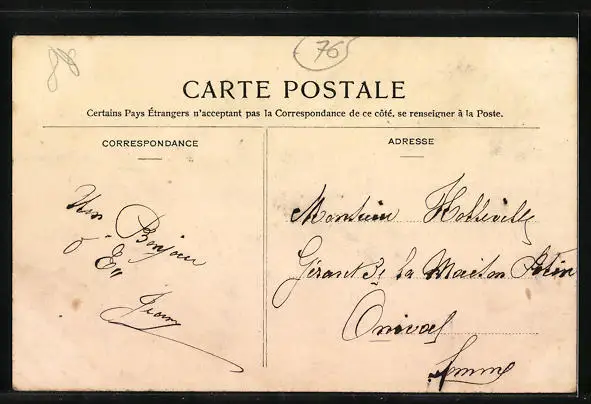 76
CARTE POSTALE
Certains Pays Étrangers n'acceptant pas la Correspondance de ce côté, se renseigner à la Poste.
CORRESPONDANCE
Un Bonjour
ADRESSE
Monsieur Holleville
Gérant de la Maison
Onival
Somme